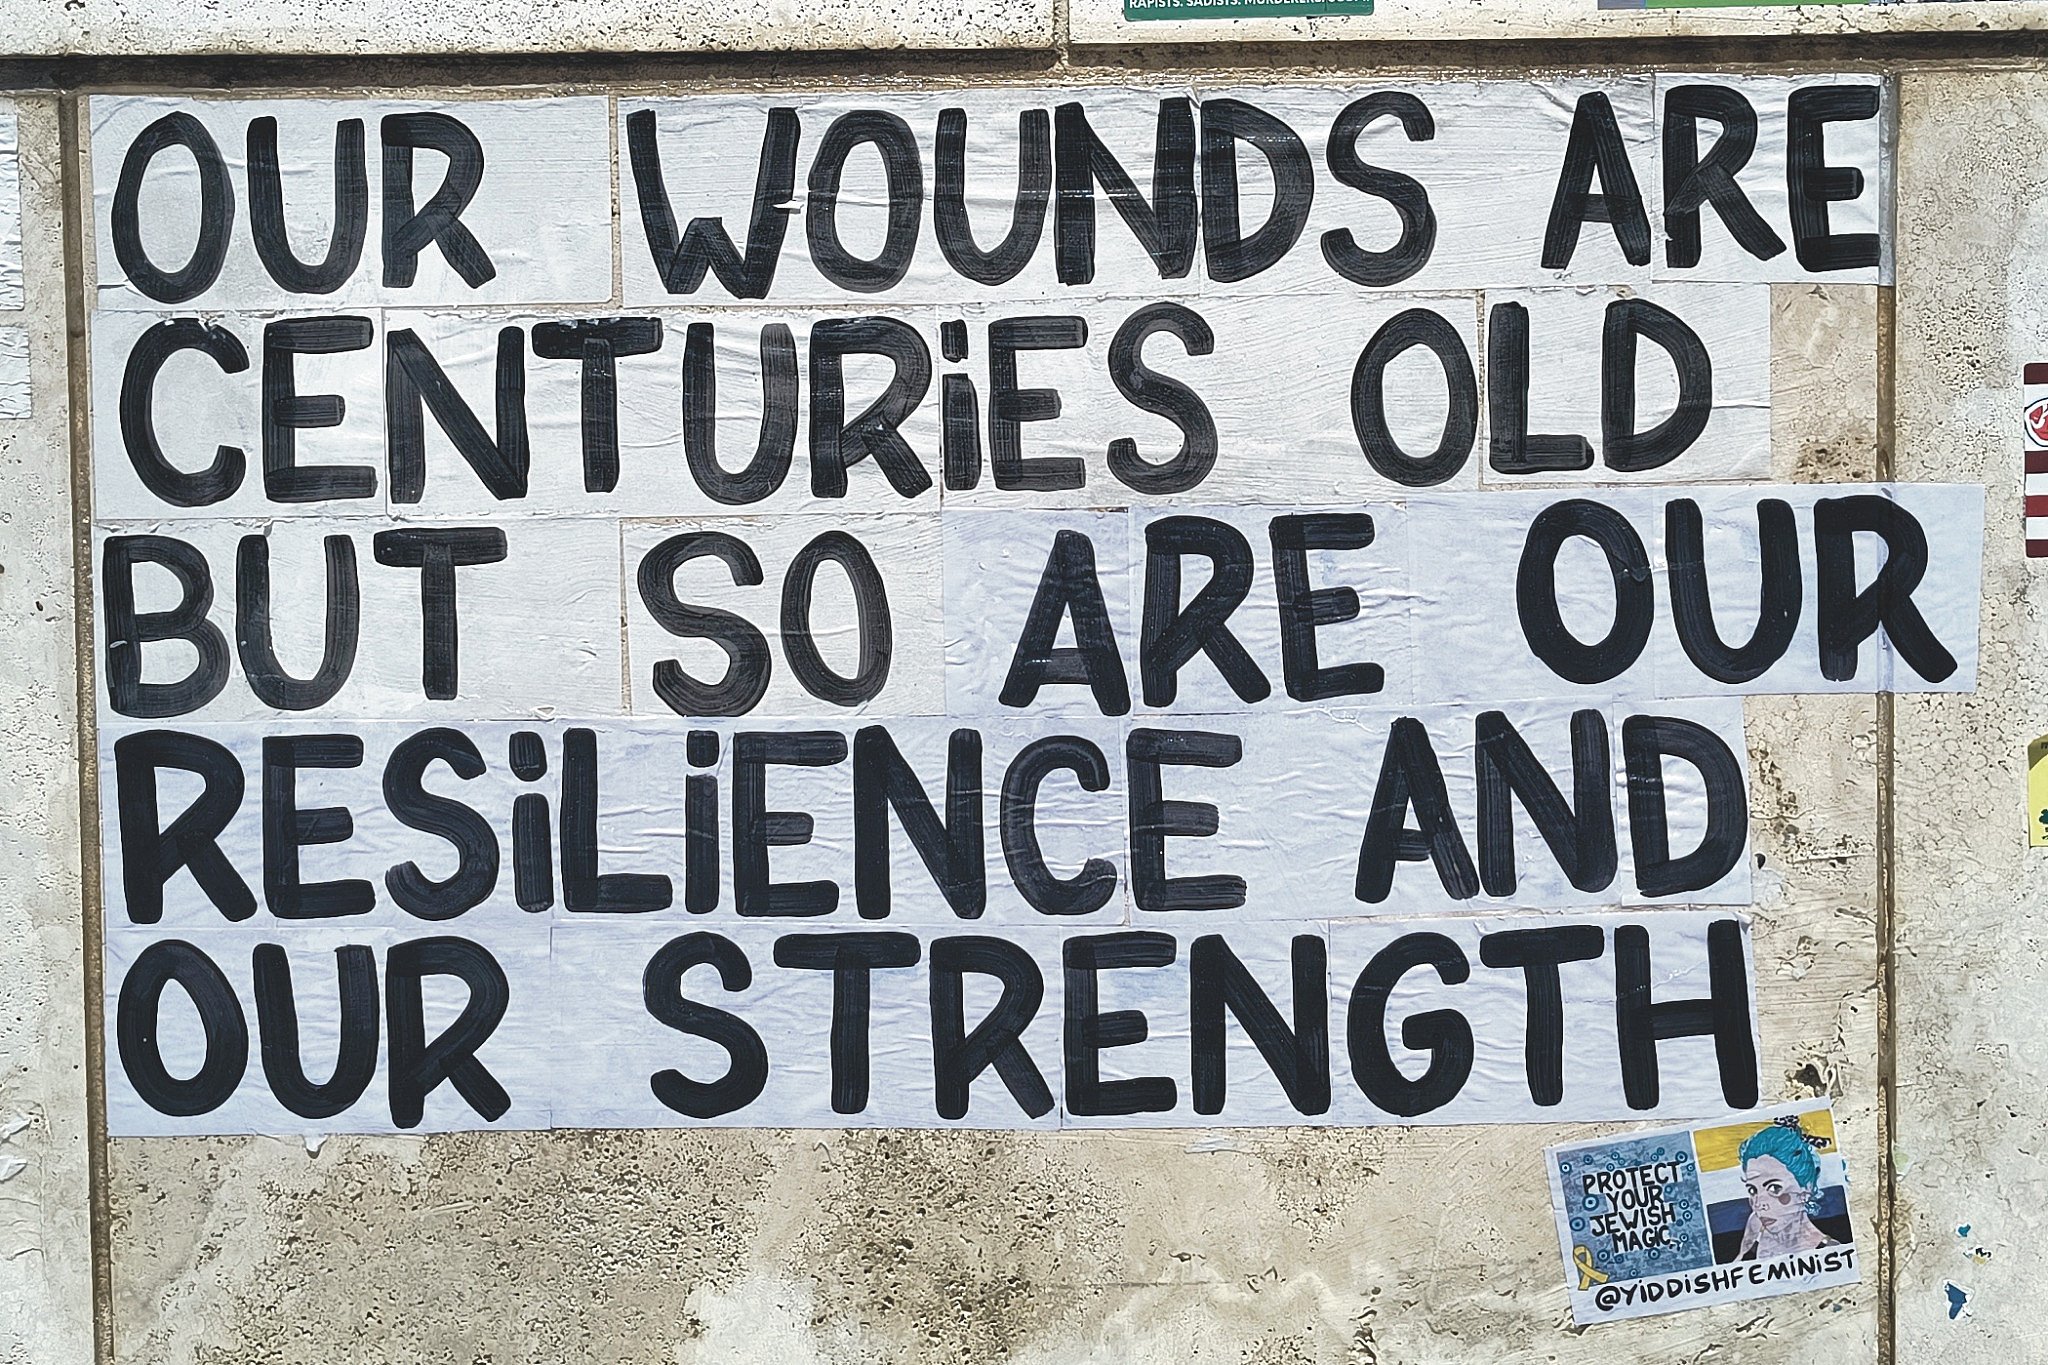 RAPISTS. SADISTS. MURDERERS.
OUR WOUNDS ARE
CENTURiES OLD
BUT SO ARE OUR
RESiLiENCE AND
OUR STRENGTH
PROTECT
YOUR
JEWISH
MAGIC
@YiDDiSHFEMiNiST